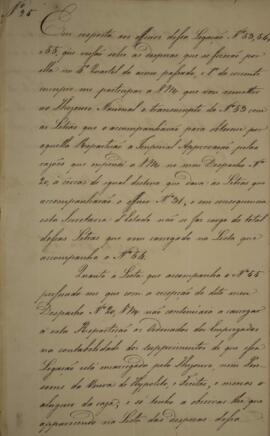 Nº 25
Em resposta aos officios dessa Legação Nºs 53, 54,
e 55, que versão sobre as despezas que se fizerão por
ella no 4º Quartel do anno passado, e 1º do corrente
cumpre-me participar a V.Mce que vou remetter
ao Thesouro Nacional a transcripto do Nº 53 com
as Letras que o acompanharão para obterem por
aquella Repartição a Imperial Approvação pelas
razões que expendi a V.Mce no meu Despacho Nº
20, á cerca de igual doutrina que dava as Letras que
acompanharão o officio Nº 31, e em consequencia
esta Secretaria d'Estado não se faz cargo do total
dessas Letras que vem carregada na Lista que
acompanha o Nº 54.
Quanto a Lista que acompanha o Nº 55
persuado-me que com a recepção do dito meu
Despacho Nº 20 V.Mce não continuará a carregar
a esta Repartição os Ordenados dos Empregados
na contabilidade dos supprimentos de que essa
Legação está encarregada pelo Thesouro, nem
de Hypolito, e Freitas, e menos o
aluguer da caza; e só tenho a observar-lhe que
apparecendo na Lista das despezas dessa